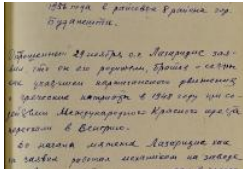 1956 года в районе 8 района гор.
Будапешта.
Опрошенный 29 ноября с.г. Лазаридис зая-
вил, что он его родители, братья - сестры
как участники партизанского движения
греческие патриоты в 1948 году при со-
действии Международного Красного креста
переехали в Венгрию.
До начала мятежа Лазаридис как
он заявил работал механиком на заводе